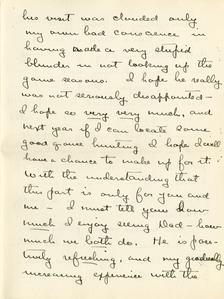 his visit was clouded only
my own bad conscience in
having made a very stupid
blunder in not looking up the
game seasons. I hope he really
was not seriously disappointed—
I hope so very very much, and
next year if I can locate some
good game hunting I hope I will
have a chance to make up for it.
With the understanding that
this part is only for you and
me — I must tell you how
much I enjoy seeing Dad — how
much we both do. He is pos-
itively refreshing, and my gradually
increasing experience with the